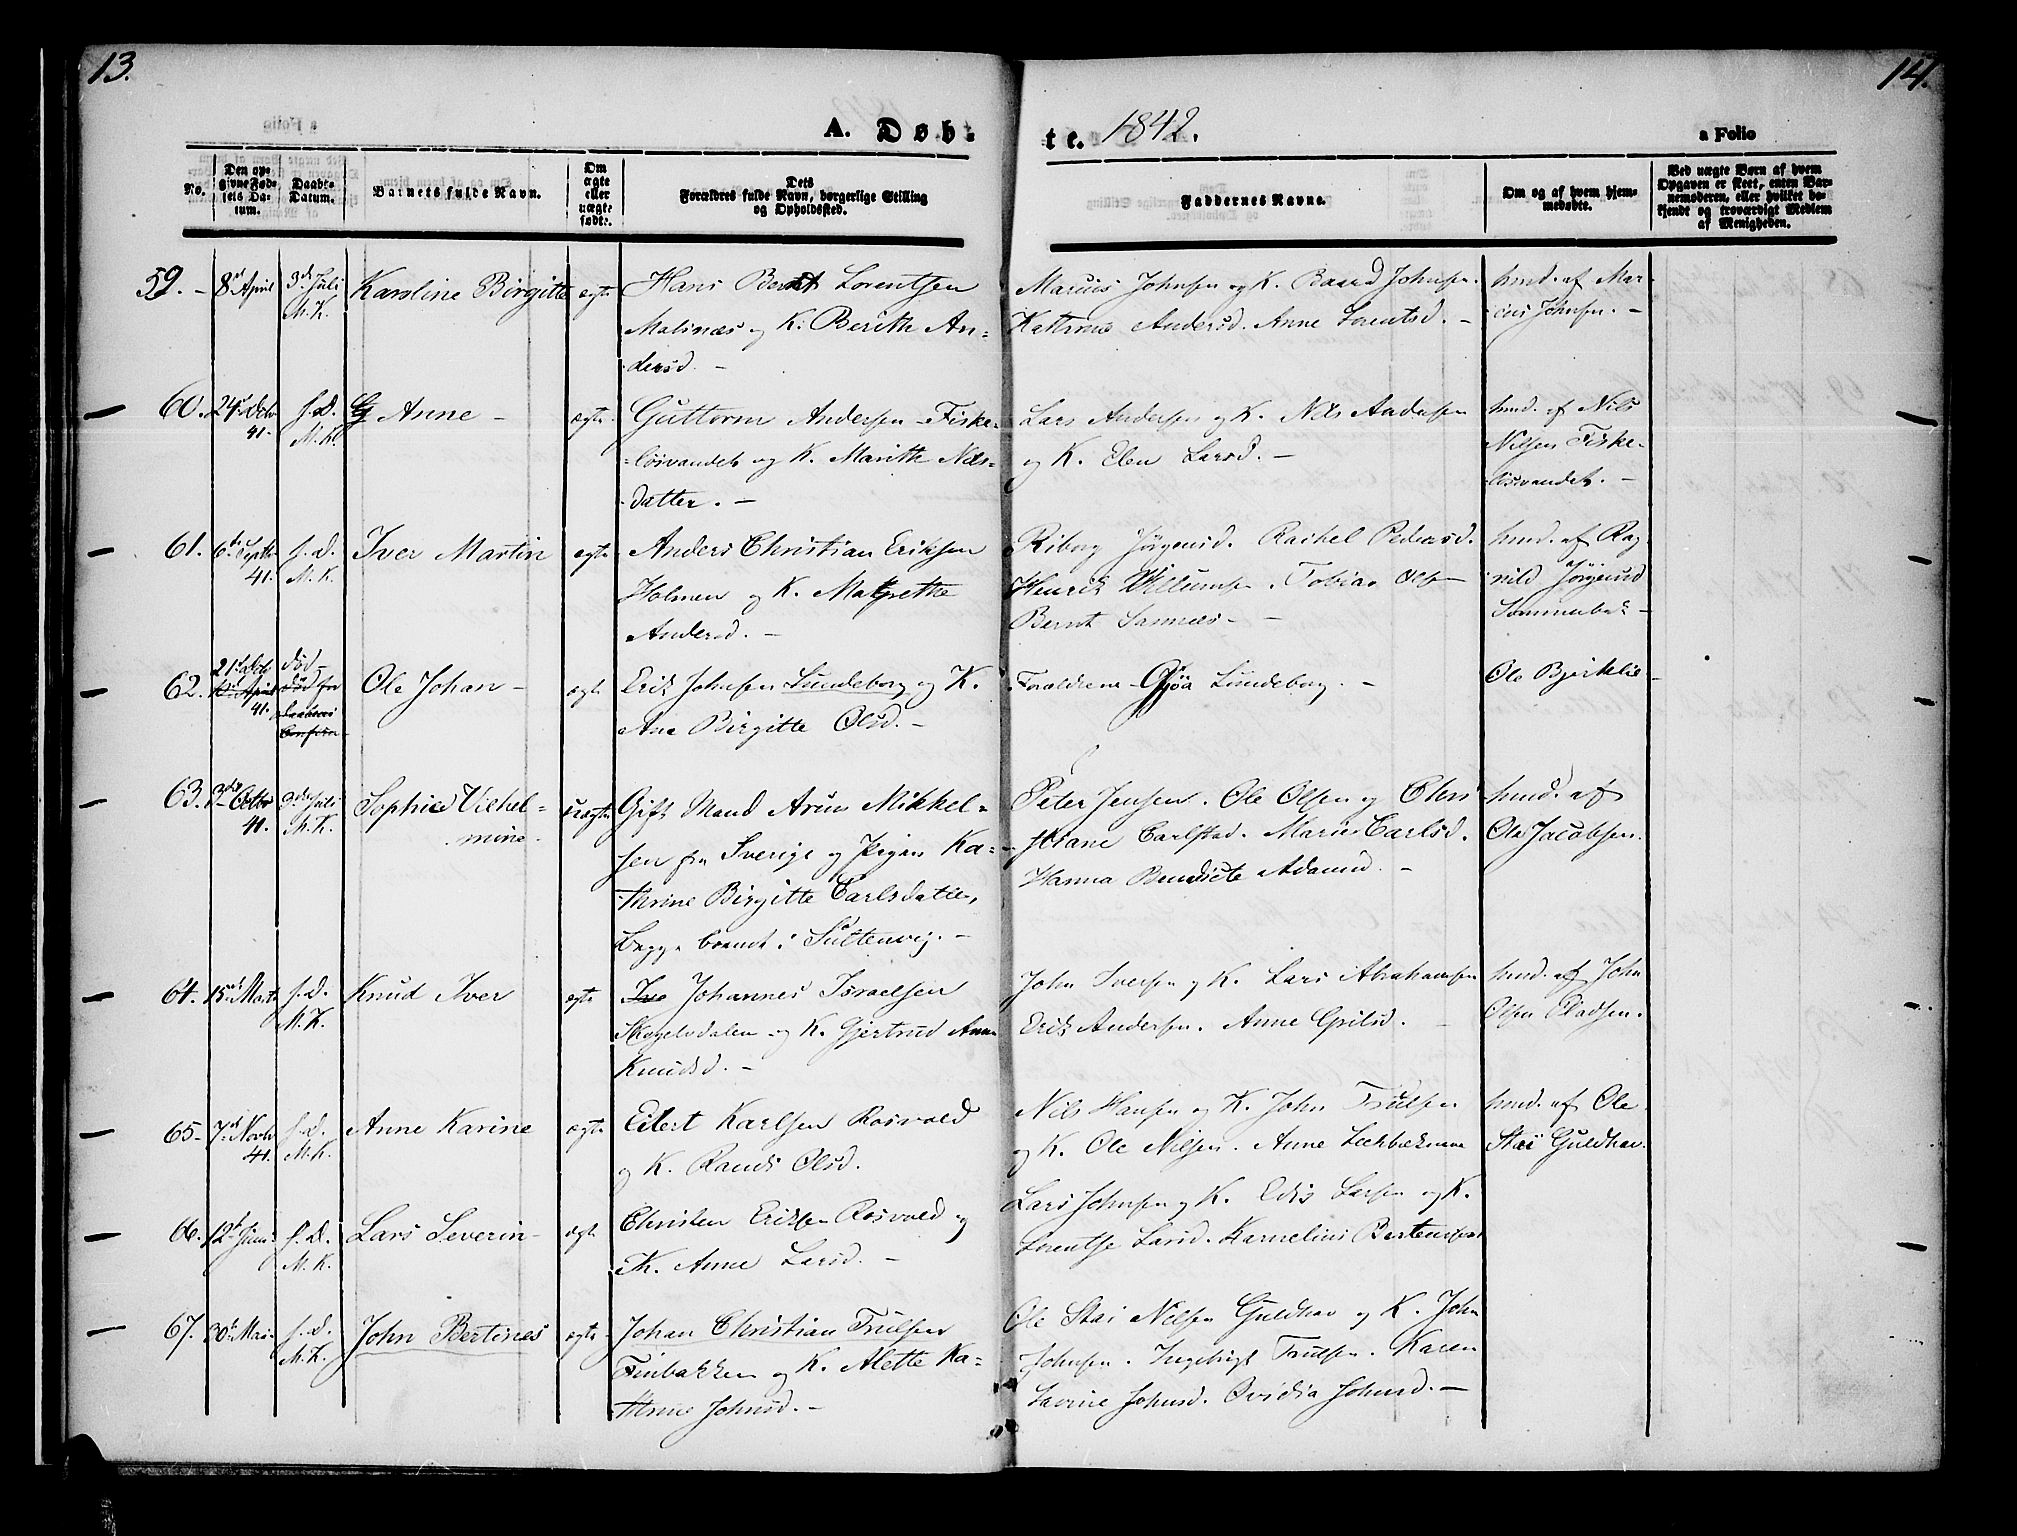 13.
14.
A. Døb-
te. 1842.
a Folio
No.
Den op-
givne Fød-
sels Da-
tum.
Daabs-
Datum.
Barnets fulde Navn.
Om
ægte
eller
uægte
født.
Dets
Forældres fulde Navn, borgerlige Stilling
og Opholdssted.
Faddernes Navne.
Om og af hvem hjem-
medøbt.
Ved uægte Børn af hvem
Opgaven er skeet, enten Bar-
nemoderen, eller hvilket be-
kjendt og troværdigt Medlem
af Menigheden.
59. - 8de April 3de Juli
M. K.
Karoline Birgitte ægte
Hans Bernt Lorentsen
Malinæs og K. Berith An-
dersd. -
Marius Johnsen og K. Baard Johnsen.
Kathrine Andersd. Anne Lorentsd. -
hmd. af Mar-
cus Johnsen. -
60. 24de Octbr
41. s. D.
M. K.
Anne - ægte
Guttorm Andersen - Fiske-
løsvandet og K. Marith Nils-
datter. -
Lars Andersen og K. Nils Andersen
og K. Elen Larsd. -
hmd. af Nils
Nilsen Fiske-
løsvandet. -
61. 6te Septbr
41. s. D.
M. K.
Iver Martin ægte
Anders Christian Eriksen
Holmen og K. Margrethe
Andersd. -
Riborg Jørgensd. Rachel Pedersd.
Henrik Willumsen. Tobias Olsen
Bernt Sannæs -
hmd. af Rag-
nild Jørgensd
Sommerbak -
62. 21de Octbr
41. død
Ole Johan - ægte
Erik Johnsen Lundeborg og K.
Ane Birgitte Olsd. -
Forældrene - Gjøa Lundeborg. -
Ole Bjerklie -
63. 3die Octbr
41. 3die Juli
M. K.
Sophie Vilhel-
mine - uægte
Gift Mand Arun Mikkel-
sen fra Sverige og Pigen Ka-
thrine Birgitte Carlsdatter,
begge boende i Sultenvig. -
Peter Jensen. Ole Olsen og Chri
stiane Carlstad. Marie Carlsd.
Hanna Benedicte Adamsd. -
hmd. af
Ole Jacobsen.
64. 15de Marts s. D.
M. K.
Knud Iver ægte
Johannes Israelsen
Skogelvdalen og K. Gjertrud Anne
Knudsd. -
John Iversen og K. Lars Abrahamsen
Erik Andersen. Anne Grilsd.
hmd. af John
Olsen Pladsen.
65 - 7de Novbr
41. s. D.
M. K.
Anne Karine ægte
Eilert Karlsen Rosvold
og K. Randi Olsd.
Nils Hansen og K. John Trulsen
og K. Ole Nilsen. Anne
hmd. af Ole
Stai Guldhav.
66. 12te Juni s. D.
M. K.
Lars Severin - ægte
Christen Eriksen Rosvold og
K. Anne Larsd. -
Lars Johnsen og K. Edis Larsen og K.
Lorentse Larsd. Karnelius Bertensen
67. 30te Mai s. D.
M. K.
John Bertines ægte -
Johan Christian Trulsen
Finbakken og K. Alette Ka-
thrine Johnsd. -
Ole Stai Nilsen Guldhav og K. John
Johnsen. Ingebrigt Trulsen. Karen
Lavine Johnsd. Ovidia Johnsd. -